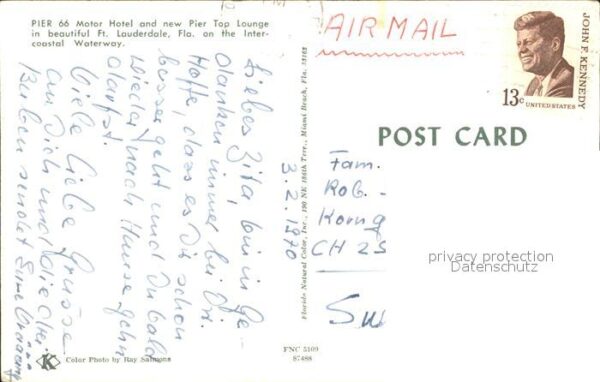 PIER 66 Motor Hotel and new Pier Top Lounge
in beautiful Ft. Lauderdale, Fla. on the Inter-
coastal Waterway.
3.2.1970
Liebes Zita, bin in Ge-
danken immer bei Dir.
Hoffe, dass es Dir schon
besser geht und Du bald
wieder nach Hause gehn
darfst.
Viele liebe Grüsse
an Dich und die drei
Buben sendet Eure
K
Color Photo by Ray Salmons
Florida Natural Color, Inc., 190 NE 186th Terr., Miami Beach, Fla. 33162
FNC 5109
87488
AIR MAIL
JOHN F. KENNEDY
13c
UNITED STATES
POST CARD
Fam.
Rob.
CH 25
privacy protection
Datenschutz